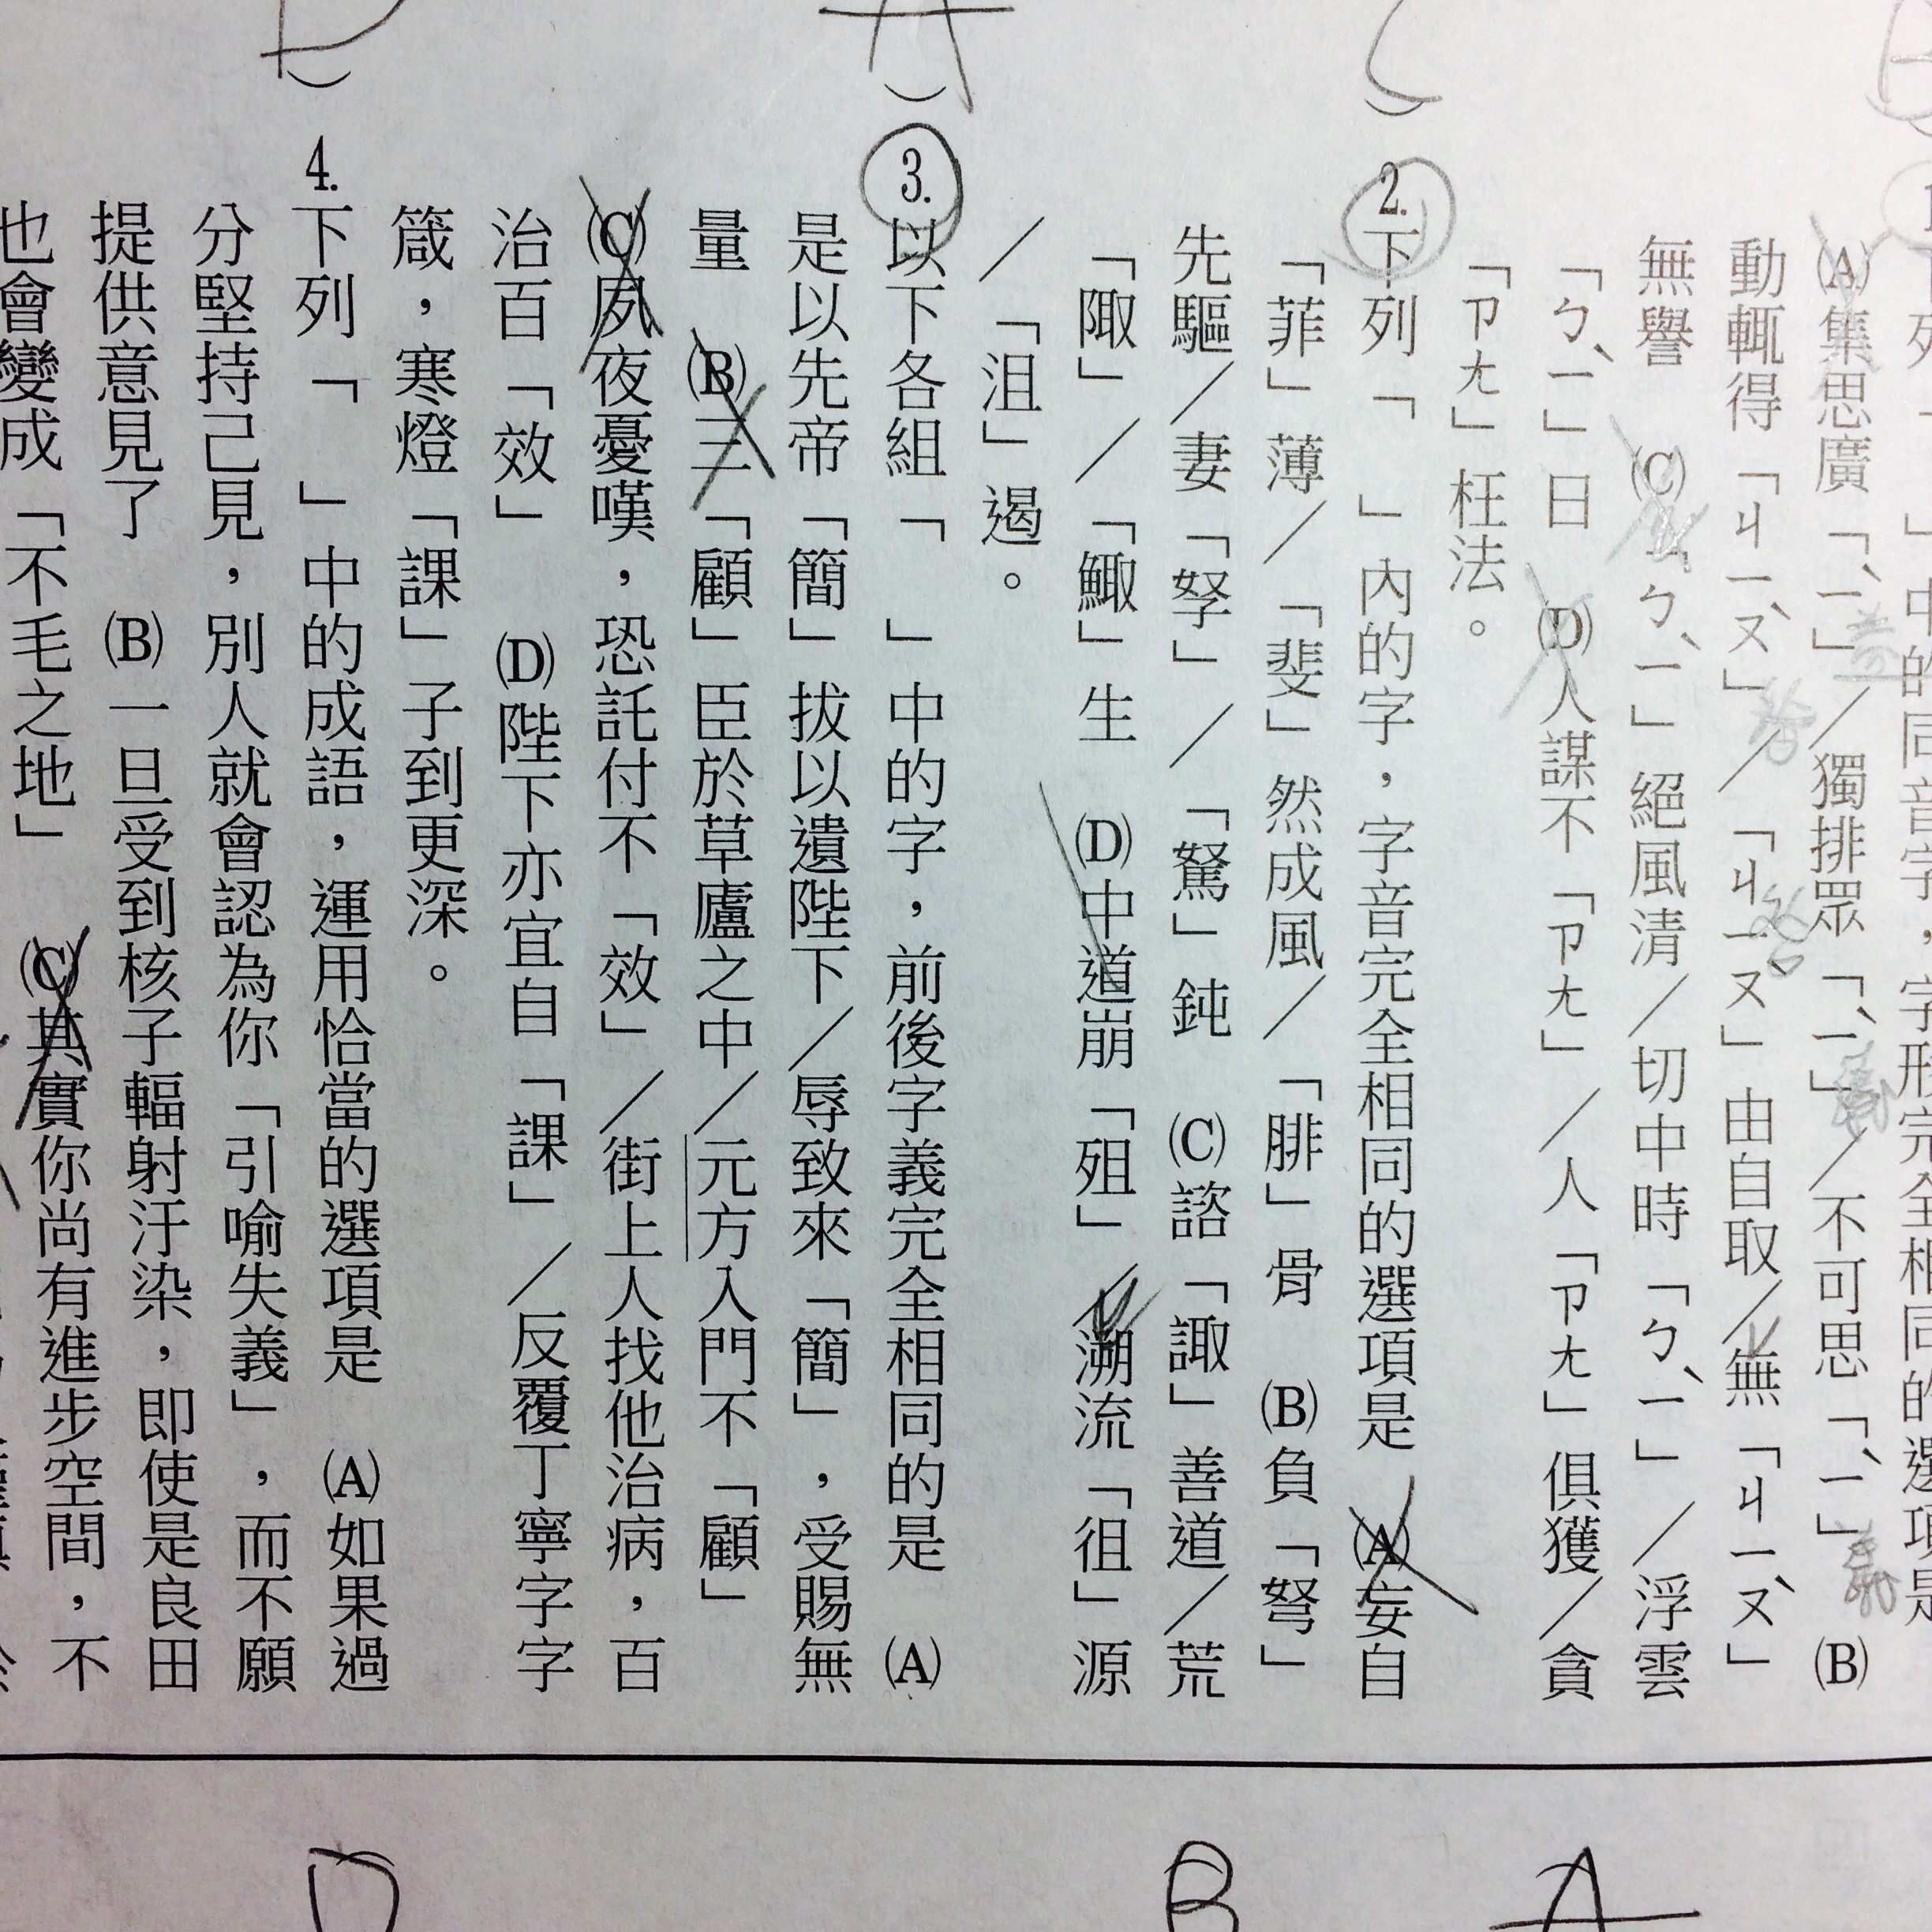 」中的同音字，字形完全相同的選項是
(A)集思廣「ㄧˋ」／獨排眾「ㄧˋ」／不可思「ㄧˋ」 (B)
動輒得「ㄐㄧㄡˋ」／「ㄐㄧㄡˋ」由自取／無「ㄐㄧㄡˋ」
無譽 (C)「ㄅㄧˋ」絕風清／切中時「ㄅㄧˋ」／浮雲
「ㄅㄧˋ」日 (D)人謀不「ㄗㄤ」／人「ㄗㄤ」俱獲／貪
「ㄗㄤ」枉法。
2.下列「 」內的字，字音完全相同的選項是 (A)妄自
「菲」薄／「斐」然成風／「腓」骨 (B)負「弩」
先驅／妻「孥」／「駑」鈍 (C)諮「諏」善道／荒
「陬」／「鯫」生 (D)中道崩「殂」／溯流「徂」源
／「沮」遏。
3.以下各組「 」中的字，前後字義完全相同的是 (A)
是以先帝「簡」拔以遺陛下／辱致來「簡」，受賜無
量 (B)三「顧」臣於草廬之中／元方入門不「顧」
(C)夙夜憂嘆，恐託付不「效」／街上人找他治病，百
治百「效」 (D)陛下亦宜自「課」／反覆丁寧字字
箴，寒燈「課」子到更深。
4.下列「 」中的成語，運用恰當的選項是 (A)如果過
分堅持己見，別人就會認為你「引喻失義」，而不願
提供意見了 (B)一旦受到核子輻射汙染，即使是良田
也會變成「不毛之地」 (C)其實你尚有進步空間，不
A
D
B
A